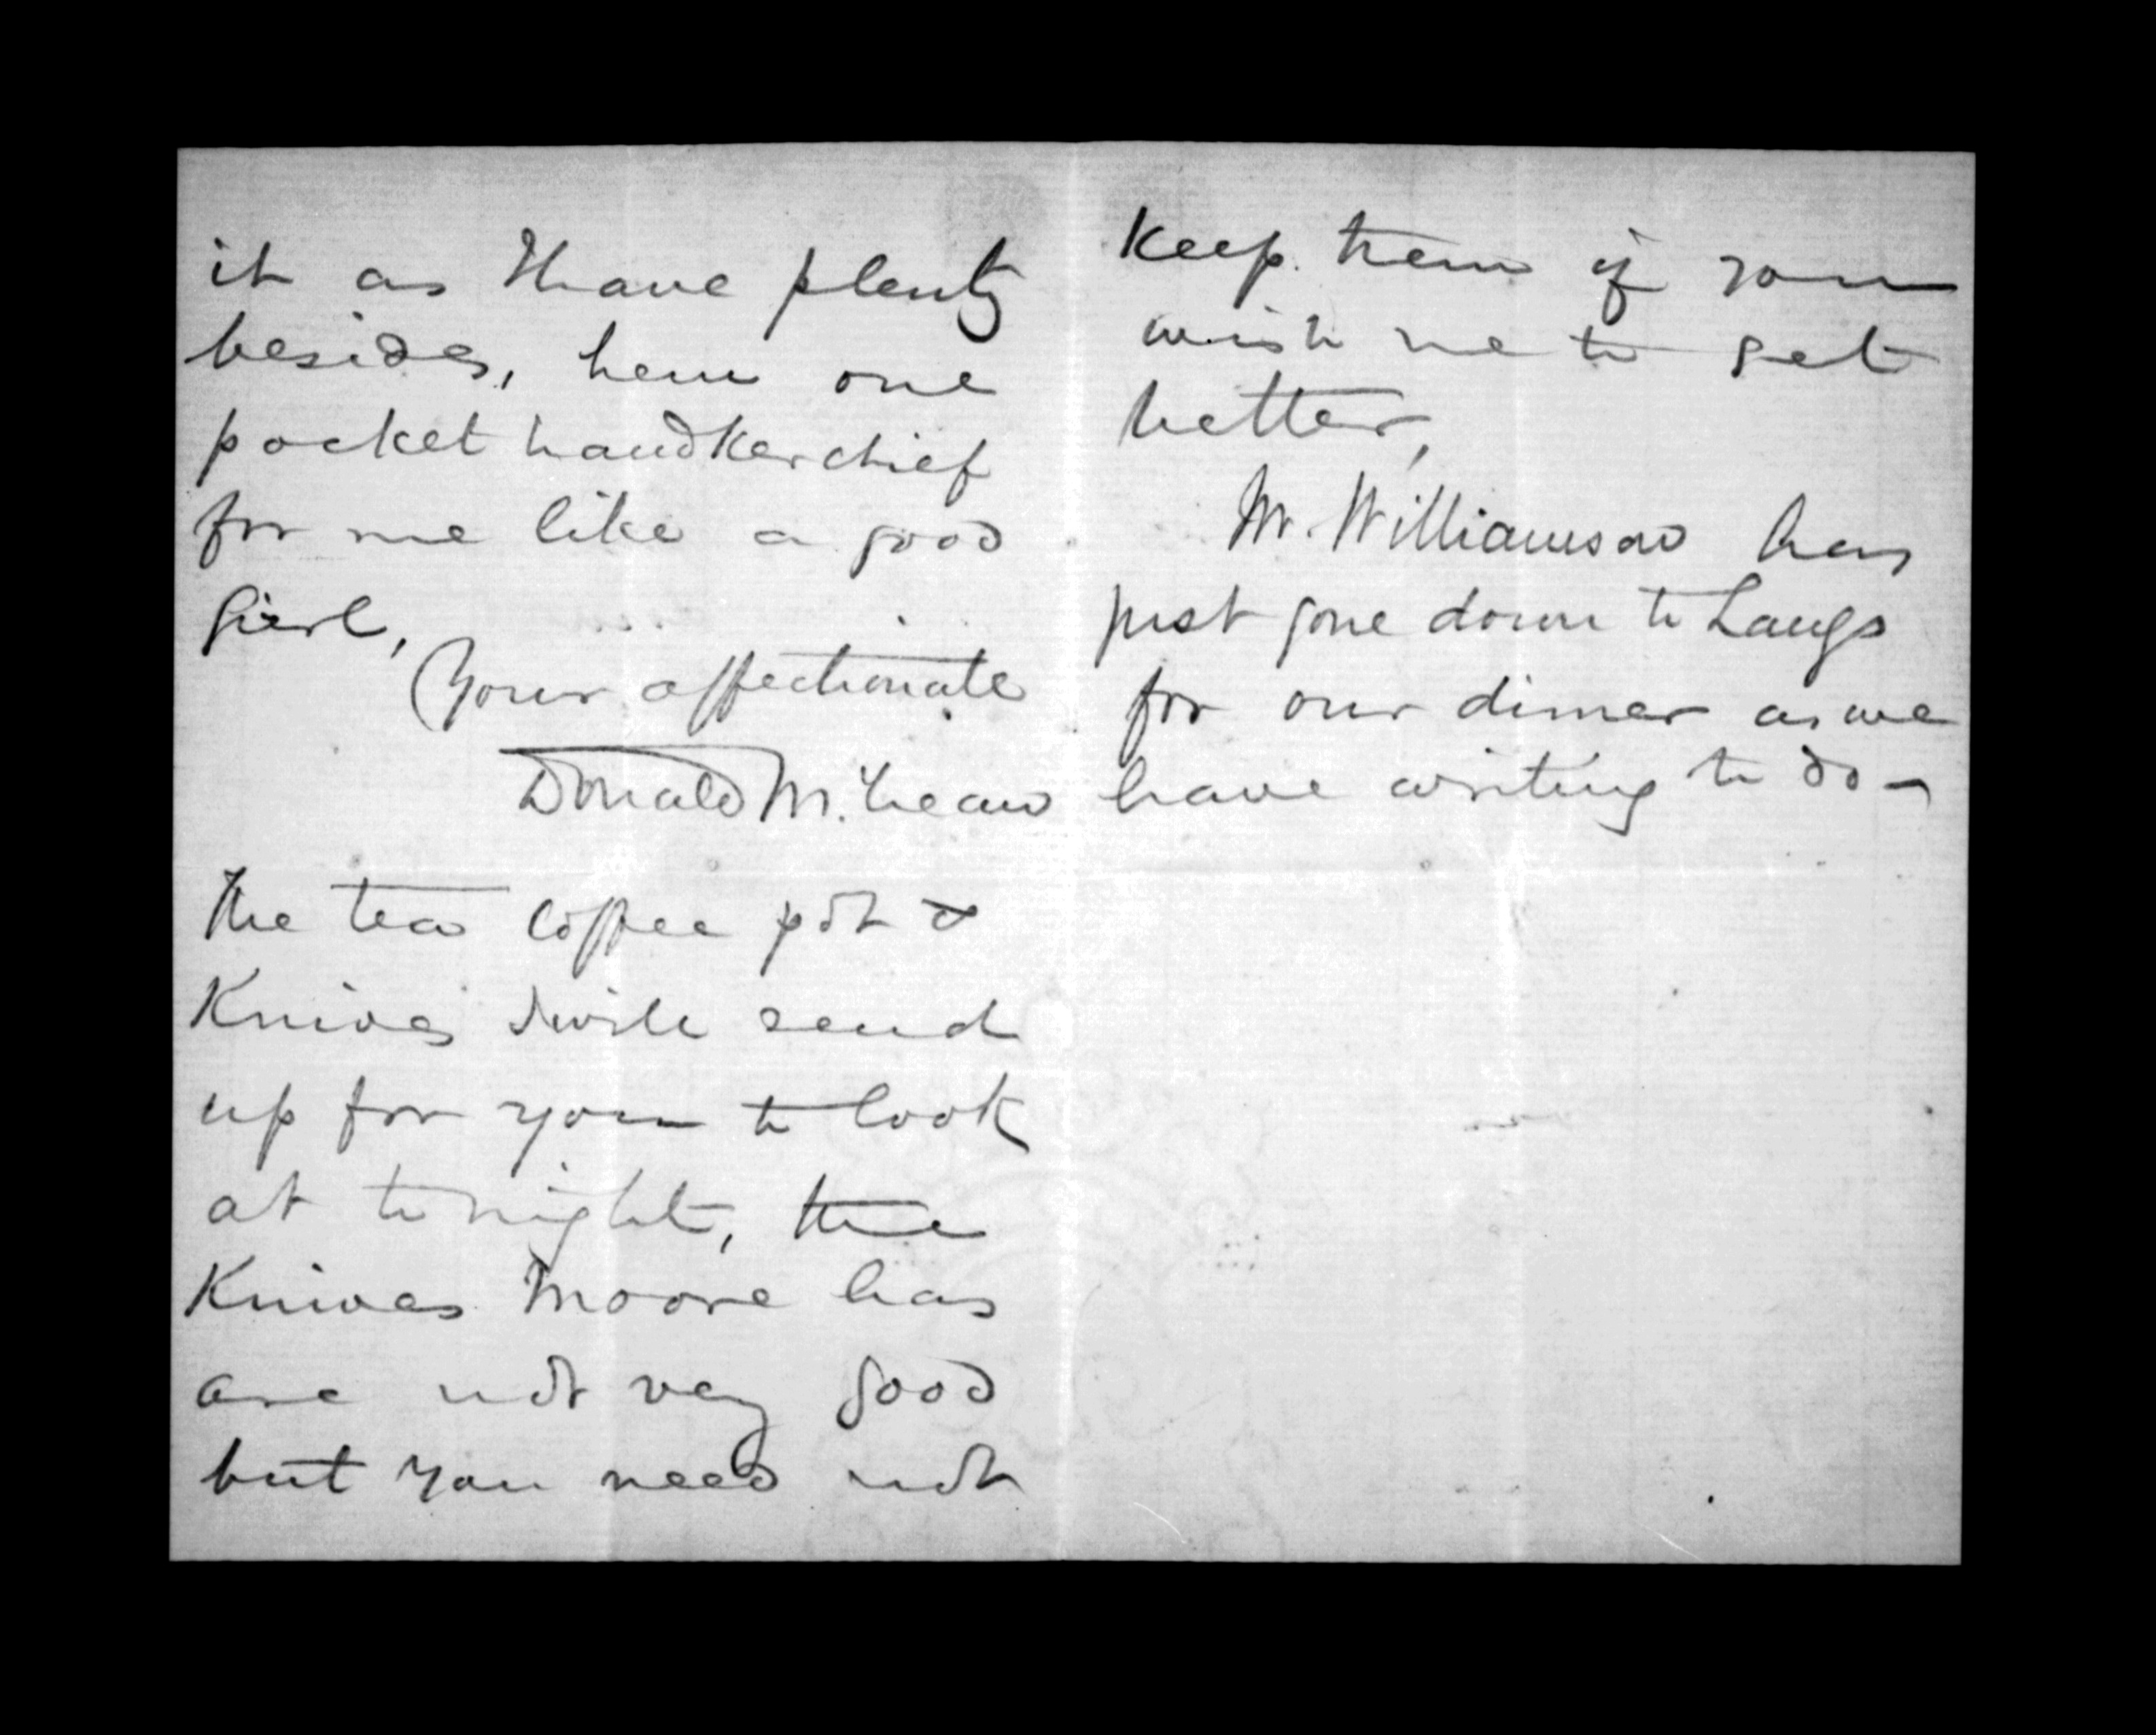 it as I have plenty
besides, hem one
pocket handkerchief
for me like a good
Girl,
Your affectionate
Donald McLean
The tea coffee pot &
Knives I will send
up for you to look
at tonight, the
Knives Moore has
are not very good
but you need not
keep them if you
wish me to get
better,
Mr. Williamson has
just gone down to Langs
for our dinner as we
have writing to do -